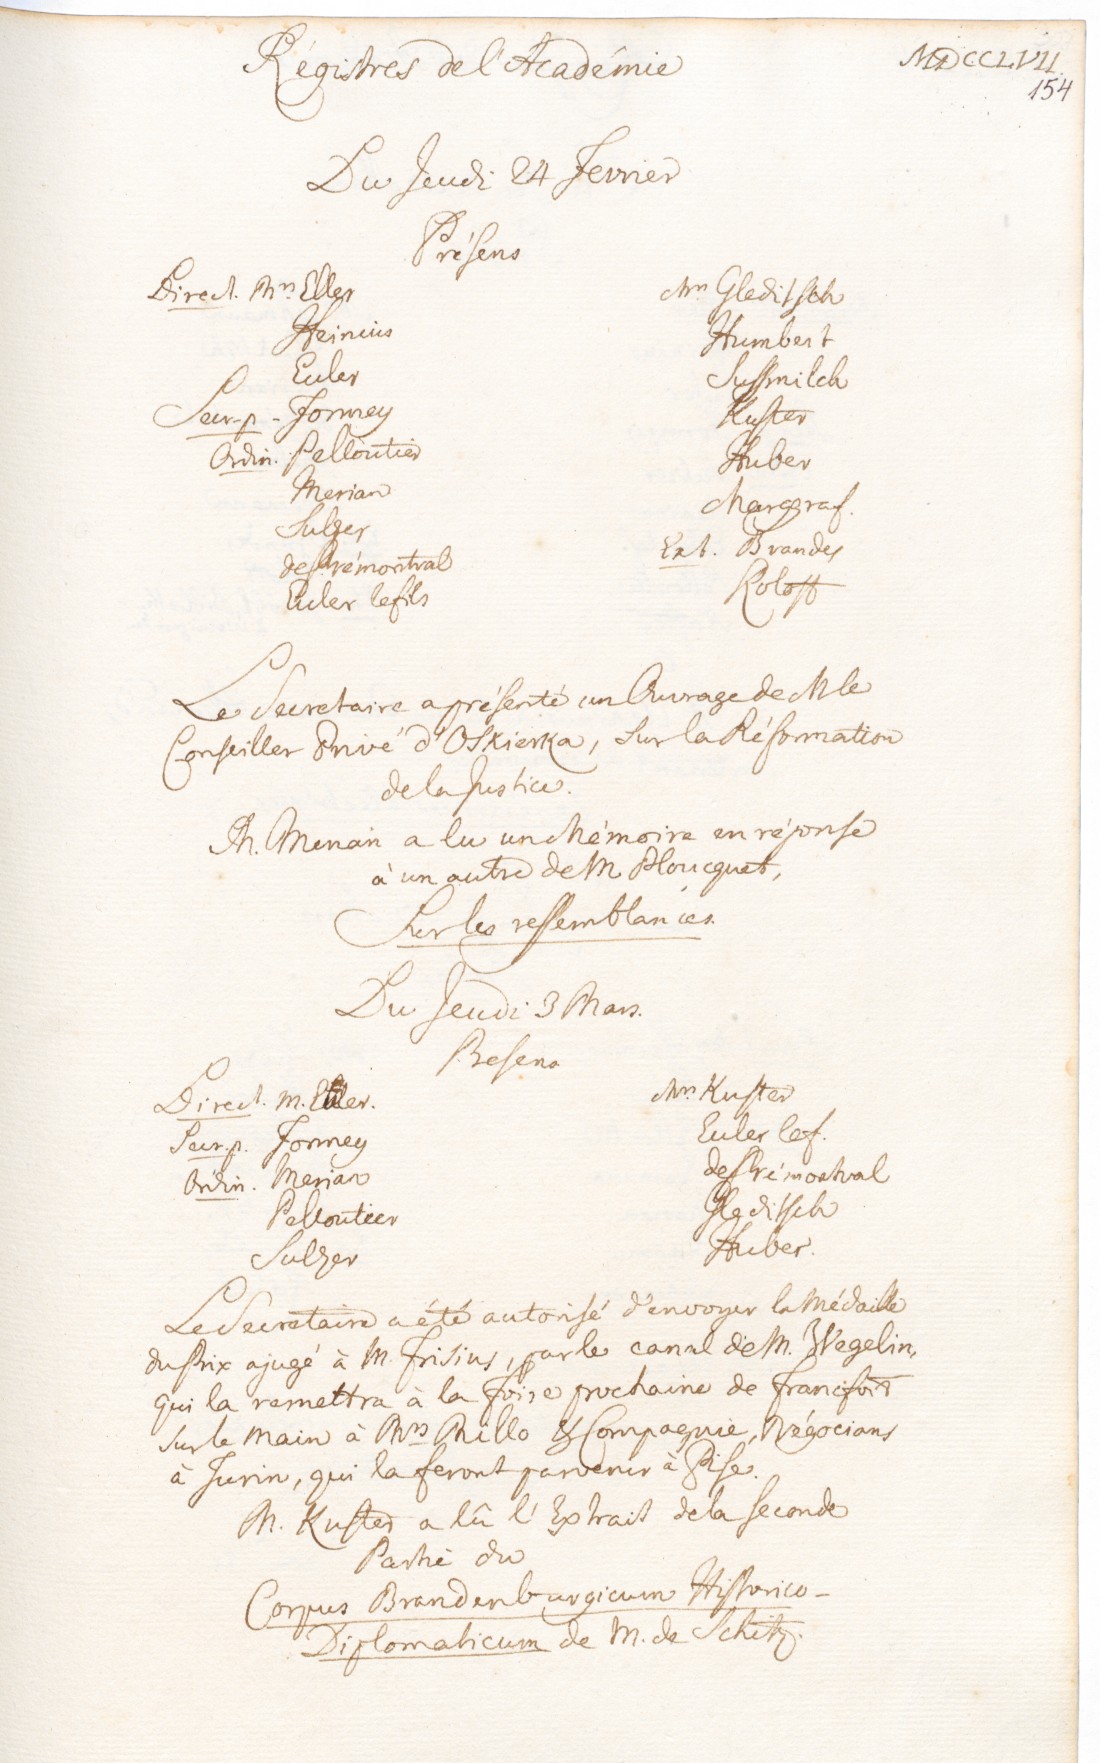 Régistres de l'Académie
MDCCLVII.
154
Du Jeudi 24 Fevrier
Présens
Direct. Mrs Eller
Heinius
Euler
Secr. p. Formey
Ordin. Pelloutier
Merian
Sulzer
de Prémontval
Euler le fils
Mrs Gleditsch
Humbert
Sussmilch
Kuster
Huber
Margraf.
Ext. Brandes
Roloff
Le Secretaire a présenté un Ouvrage de M le
Conseiller Privé d'Oskierka, sur la Réformation
de la Justice.
M. Merian a lu un Mémoire en réponse
à un autre de M Ploucquet,
Sur les ressemblances.
Du Jeudi 3 Mars.
Presens
Direct. M. Eller.
Secr. p. Formey
Ordin. Merian
Pelloutier
Sulzer
Mrs Kuster
Euler le f.
de Prémontval
Gleditsch
Huber.
Le Secretaire a été autorisé d'envoyer la Médaille
du Prix ajugé à M. Frisius, par le canal de M. Wegelin,
qui la remettra à la foire prochaine de Francfort
sur le Main à Mrs Millo & Compagnie, Négocians
à Turin, qui la feront parvenir à Pise.
M. Kuster a lû l'Extrait de la seconde
Partie du
Corpus Brandenburgicum Historico-
Diplomaticum de M. de